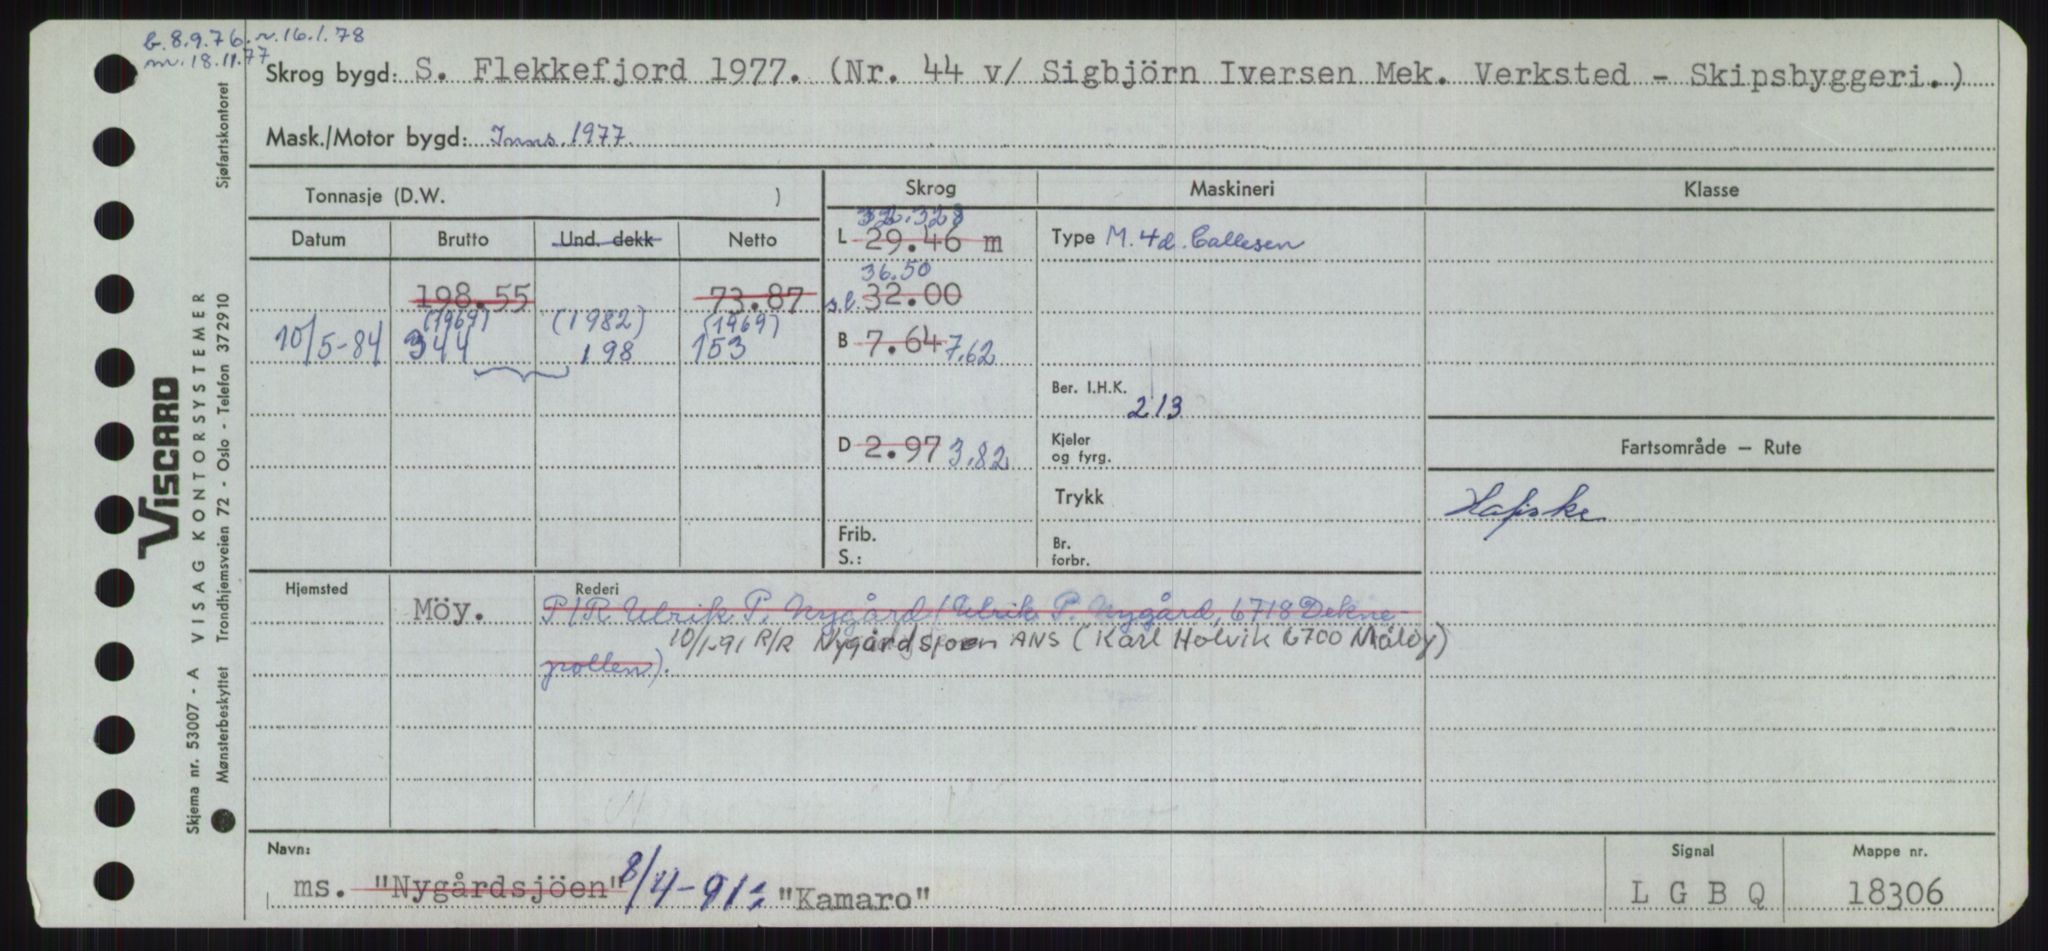 b. 8.9.76. r. 16.1.78
m. 18.11.77
Skrog bygd: S. Flekkefjord 1977. (Nr. 44 v/ Sigbjörn Iversen Mek. Verksted - Skipsbyggeri.)
Mask./Motor bygd: Inns. 1977.
Tonnasje (D.W. )
Skrog Maskineri Klasse
Datum Brutto Und. dekk Netto
32.328
L 29.46 m
Type M. 4d. Callesen
36.50
198.55 73.87
s.l. 32.00
(1969) (1982) (1969)
10/5-84 344 198 153
B 7.64 7,62
Ber. I.H.K. 213
D 2.97 3,82
Kjeler og fyrg.
Fartsområde — Rute
Trykk
Hafiske
Frib.
S.:
Br. forbr.
Hjemsted Rederi
Möy. P/R Ulrik P. Nygård (Ulrik P. Nygård, 6718 Dekne-
10/1-91 P/R Nygårdsjoen ANS (Karl Holvik 6700 Måløy)
pollen).
Navn: Signal Mappe nr.
ms. "Nygårdsjöen" 8/4-91: "Kamaro" L G B Q 18306
VISCARD
Skjema nr. 53007 - A VISAG KONTORSYSTEMER
Mønsterbeskyttet Trondhjemsveien 72 - Oslo - Telefon 372910 Sjøfartskontoret